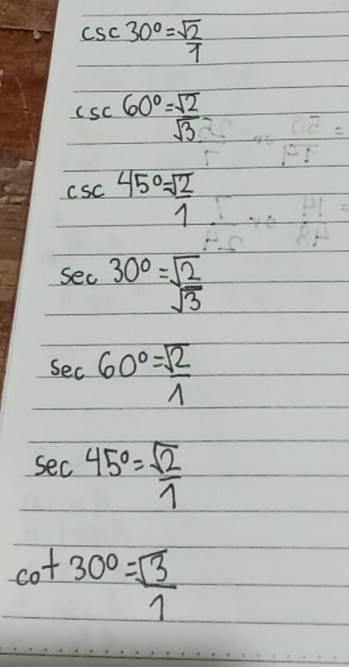 csc 30° = √2/1
csc 60° = √2/√3
csc 45° = √2/1
sec 30° = √2/√3
sec 60° = √2/1
sec 45° = √2/1
cot 30° = √3/1